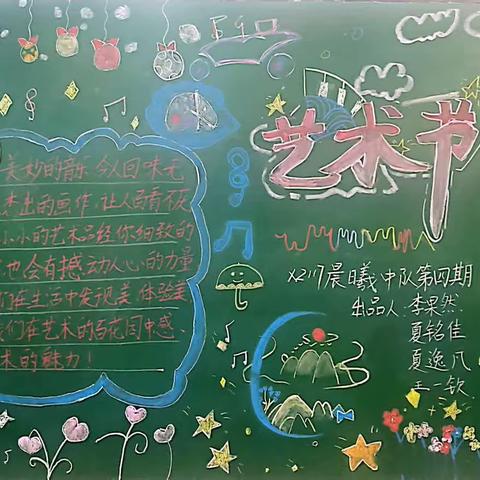 艺术节
美妙的音乐,令人回味无
杰出的画作,让人百看不
小小的艺术品经你细致的
也会有撼动人心的力量
们在生活中发现美,体验美
我们在艺术的百花园中感
术的魅力!
X2117晨曦中队第四期
出品人:李果然
夏铭佳
夏逸凡
王一钦